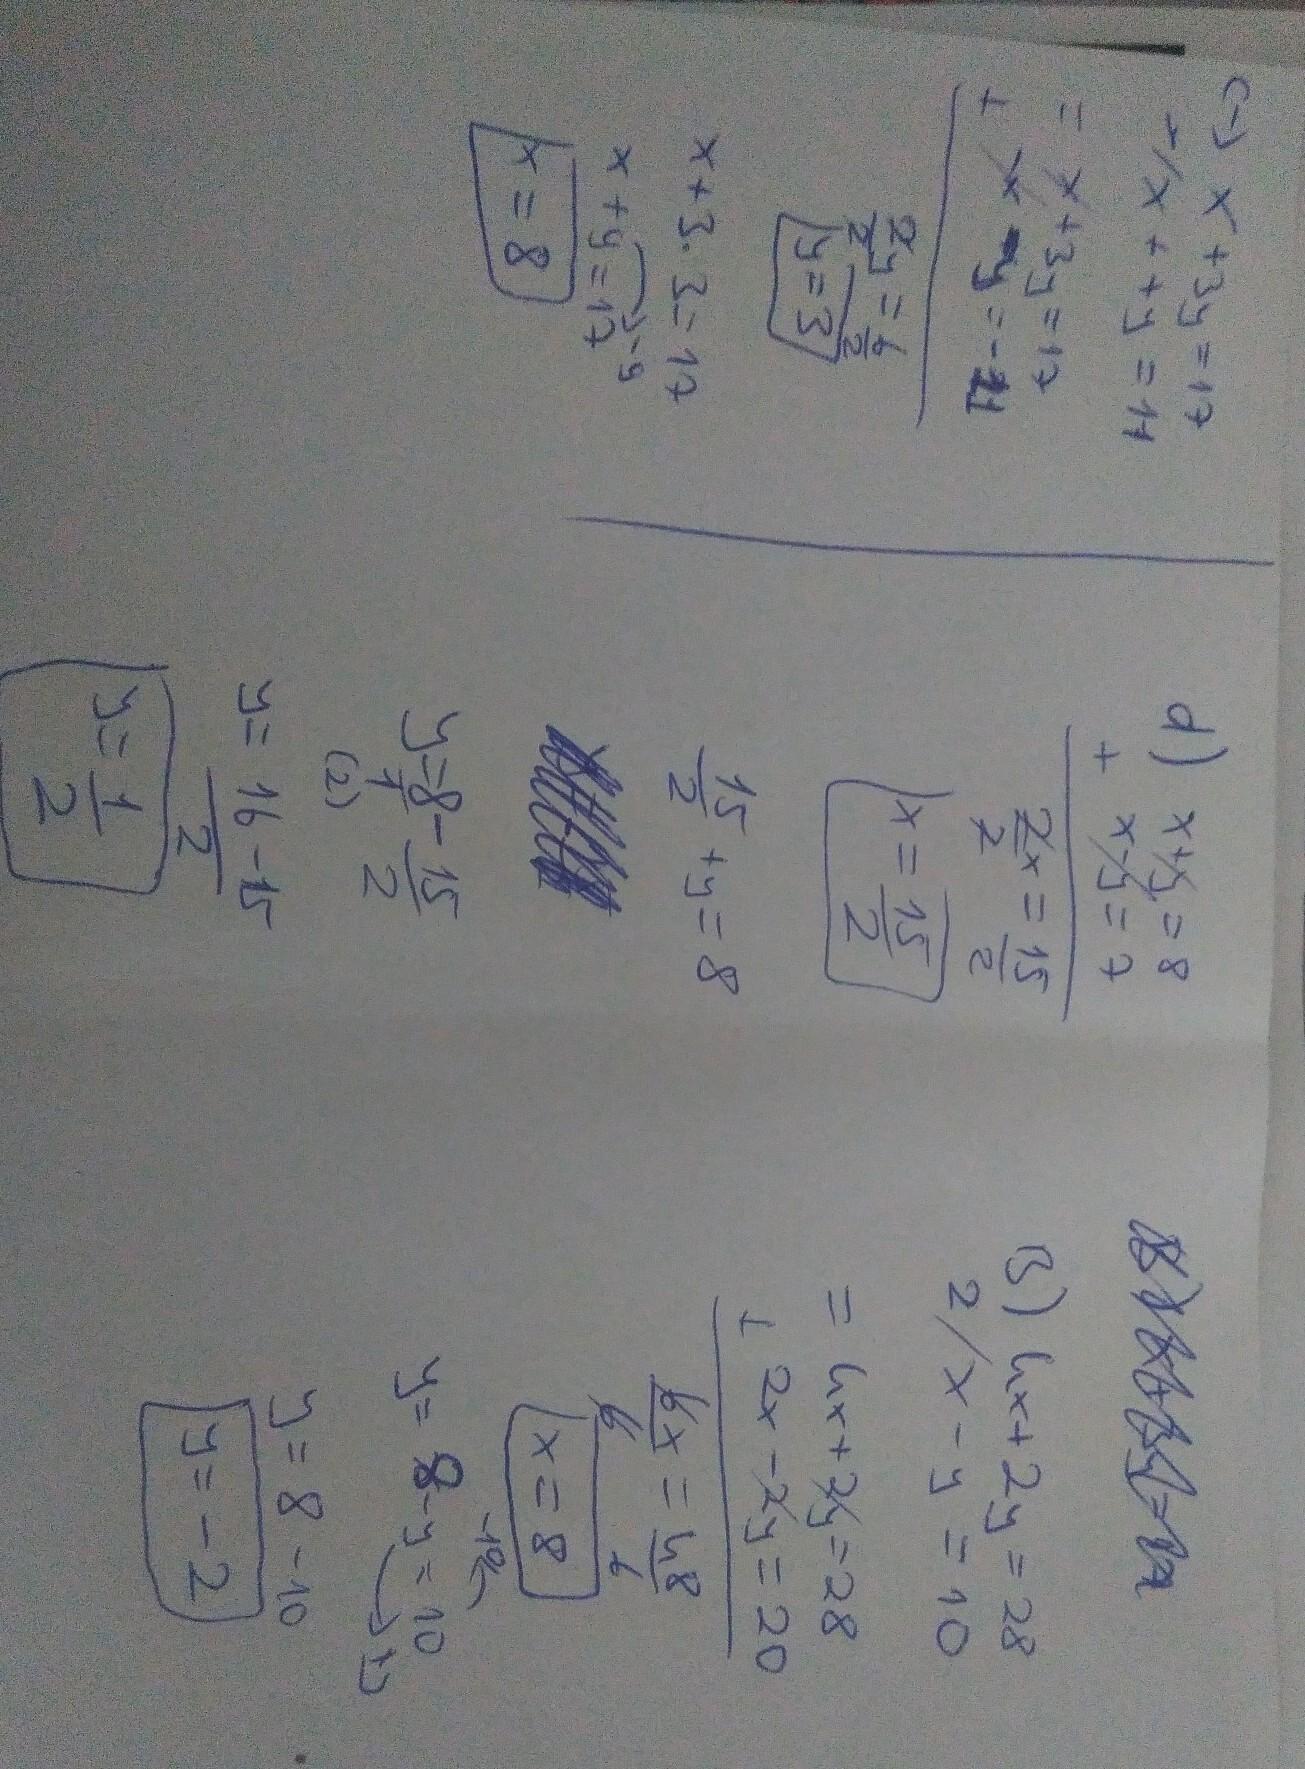 c) x+3y=17
-/x + +y = 11
= x+3y=17
+ x -y = -11
2y/2 = 6/2
y=3
x+3.3=17
x+9=17 -9
x=8
d) x+y=8
+ x-y=7
2x/2 = 15/2
x = 15/2
15/2 + y = 8
y = 8/1 - 15/2
(2)
y = 16-15/2
y = 1/2
B) 4x+2y=28
2/x - y = 10
= 4x+2y=28
+ 2x-2y=20
6x/6 = 48/6
x=8
-10
y= 8-y=10 +y
y=8-10
y=-2